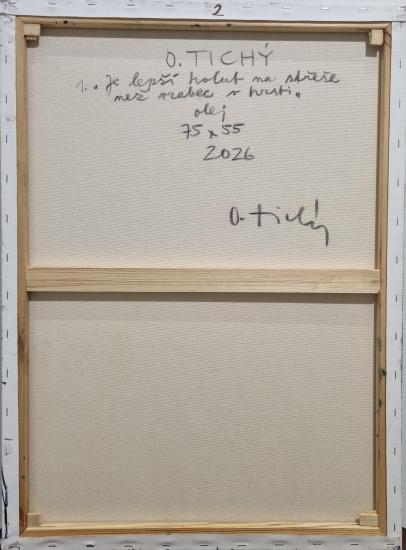 2
O. TICHÝ
1. „Je lepší holub na střeše
než vrabec v hrsti„
olej
75 x 55
2026
O. Tichý